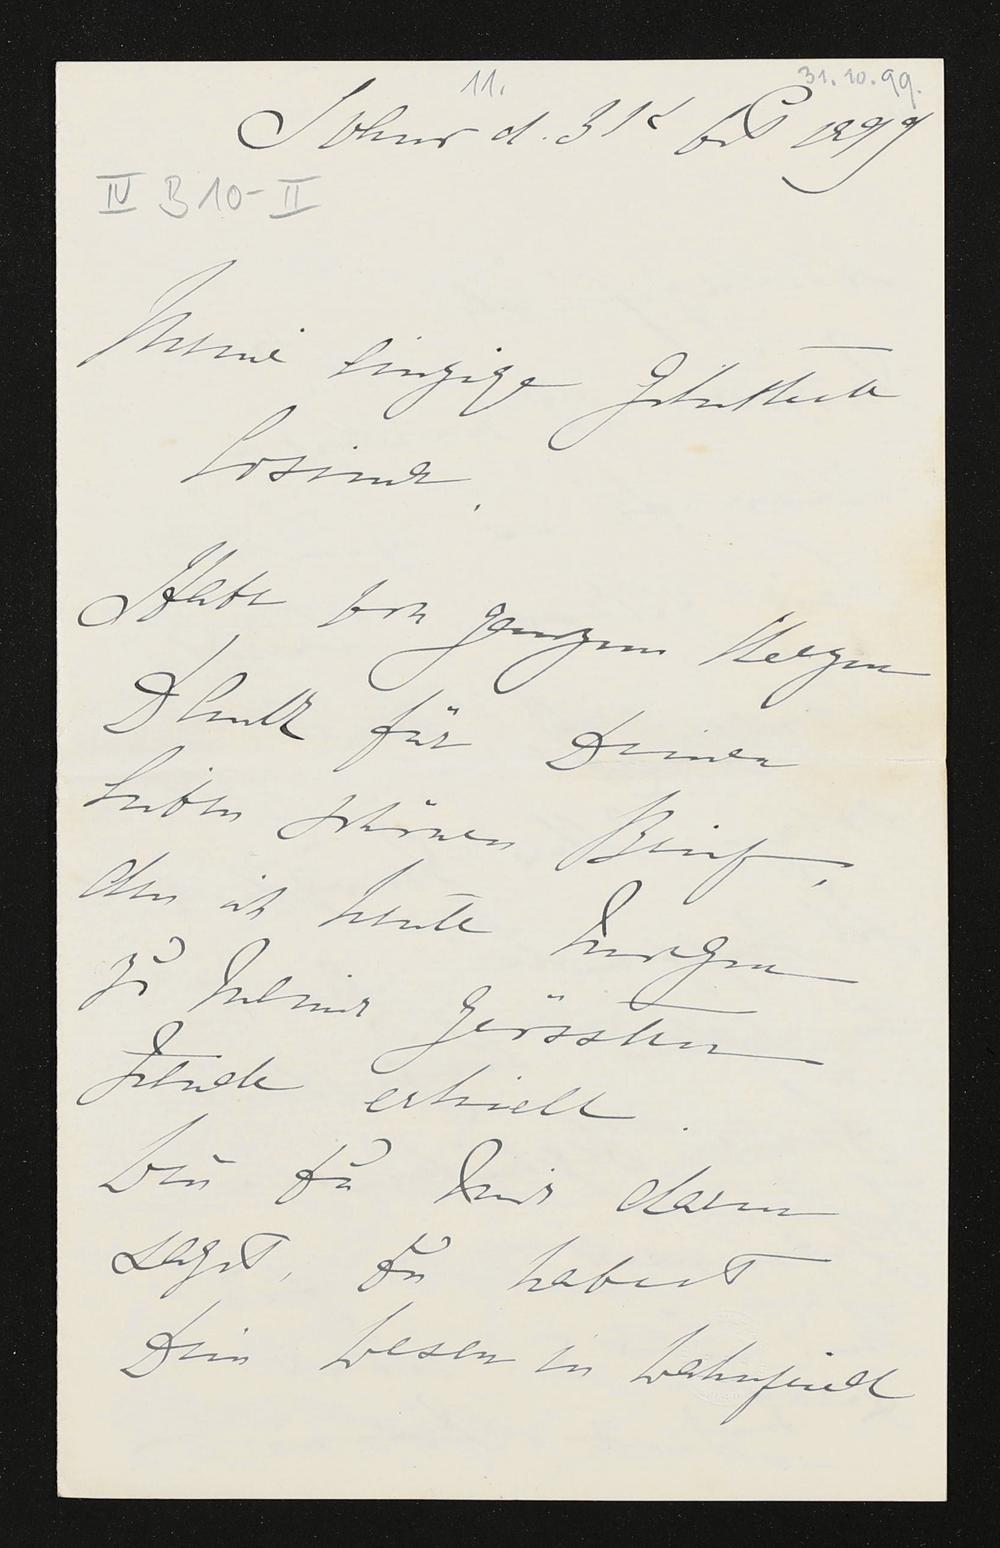 11.
31.10.99.
d. 31t Oct 1899
IV B 10-II
Meine einzige Geliebteste
Cosima,
Habe von ganzem Herzen
Dank für Deinen
lieben schönen Brief,
den ich heute Morgen
zu meiner grössten
Freude erhielt.
Wie Du mir darin
sagst, Du habest
Dein Wesen in Wahnfried